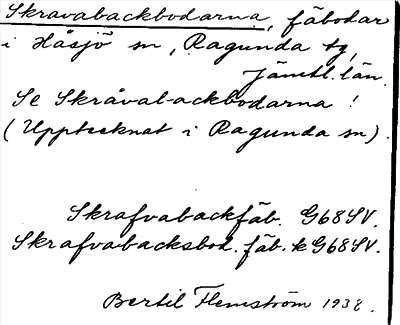 Skravabackbodarna, fäbodar
i Håsjö sn, Ragunda tg,
Jämtl. län.
Se Skråvabackbodarna!
(Upptecknat i Ragunda sn).
Skrafvabackfäb. G68SV.
Skrafvabacksbod. fäb. k G68SV.
Bertil Flemström 1938.